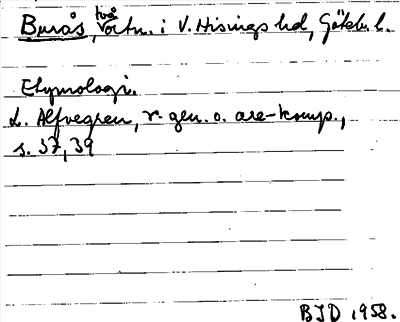 Burås, två ortn. i V. Hisings hd, Göteb. l.
Etymologi.
L. Alfvegren, r- gen. o. are-komp.,
s. 37, 39
BJD 1958.